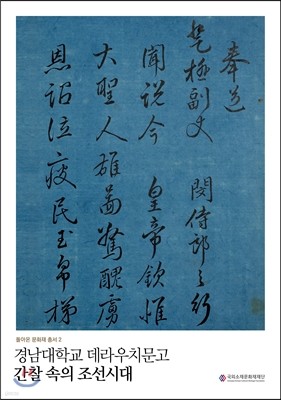 奉送
登極副使 閔侍郎之行
聞説今 皇帝欽惟
大聖人雄畧驚醜虜
恩詔泣疲民玉帛梯
돌아온 문화재 총서 2
경남대학교 데라우치문고
간찰 속의 조선시대
국외소재문화재재단